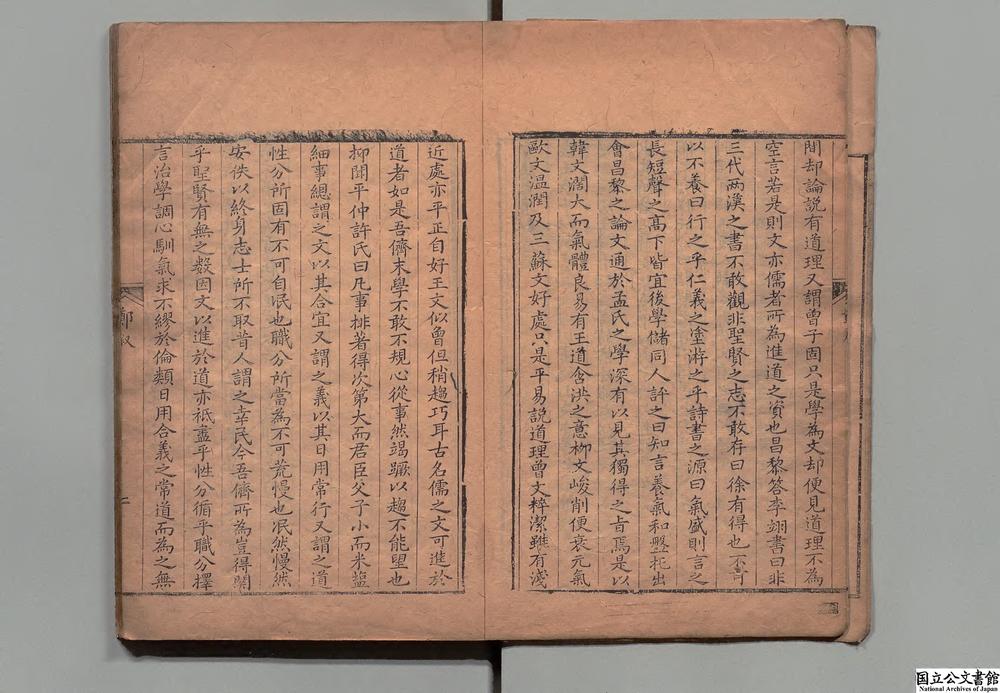 間却論說有道理又謂曾子固只是學為文却便見道理不為
空言若是則文亦儒者所為進道之資也昌黎答李翊書曰非
三代两漢之書不敢觀非聖賢之志不敢存曰徐有得也不可
以不養曰行之乎仁義之塗游之乎詩書之源曰氣盛則言之
長短聲之髙下皆宜後學儲同人評之曰知言養氣和盤托出
會昌黎之論文通於孟氏之學深有以見其獨得之旨焉是以
韓文濶大而氣體良易有王道含洪之意柳文峻削便衰元氣
歐文温潤及三蘇文好處只是平易說道理曾文梓潔雖有淺
近處亦平正自好王文似曾但稍趨巧耳古名儒之文可進於
道者如是吾儕末學不敢不規心從事然竭蹶以趨不能望也
抑聞平仲許氏曰凡事排著得次第大而君臣父子小而米鹽
細事總謂之文以其合宜又謂之義以其日用常行又謂之道
性分所固有不可自泯也職分所當為不可荒慢也泯然慢然
安佚以終身志士所不取昔人謂之幸民今吾儕所為豈得關
乎聖賢有無之数因文以進於道亦祗盡乎性分循乎職分擇
言治學調心馴氣求不繆於倫類日用合義之常道而為之無
鄭叙
二
国立公文書館
National Archives of Japan